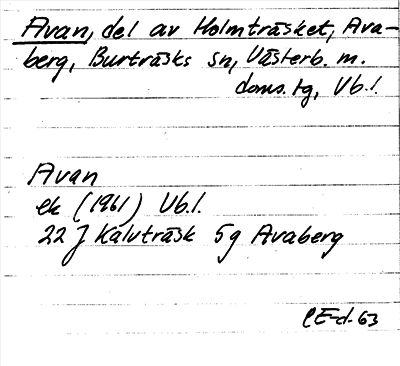 Avan, del av Holmträsket, Ava-
berg, Burträsks sn, Västerb. m.
doms.tg, Vb.l.
Avan
ek (1961) Vb.l.
22 J Kalvträsk 5g Avaberg
CE-d-63